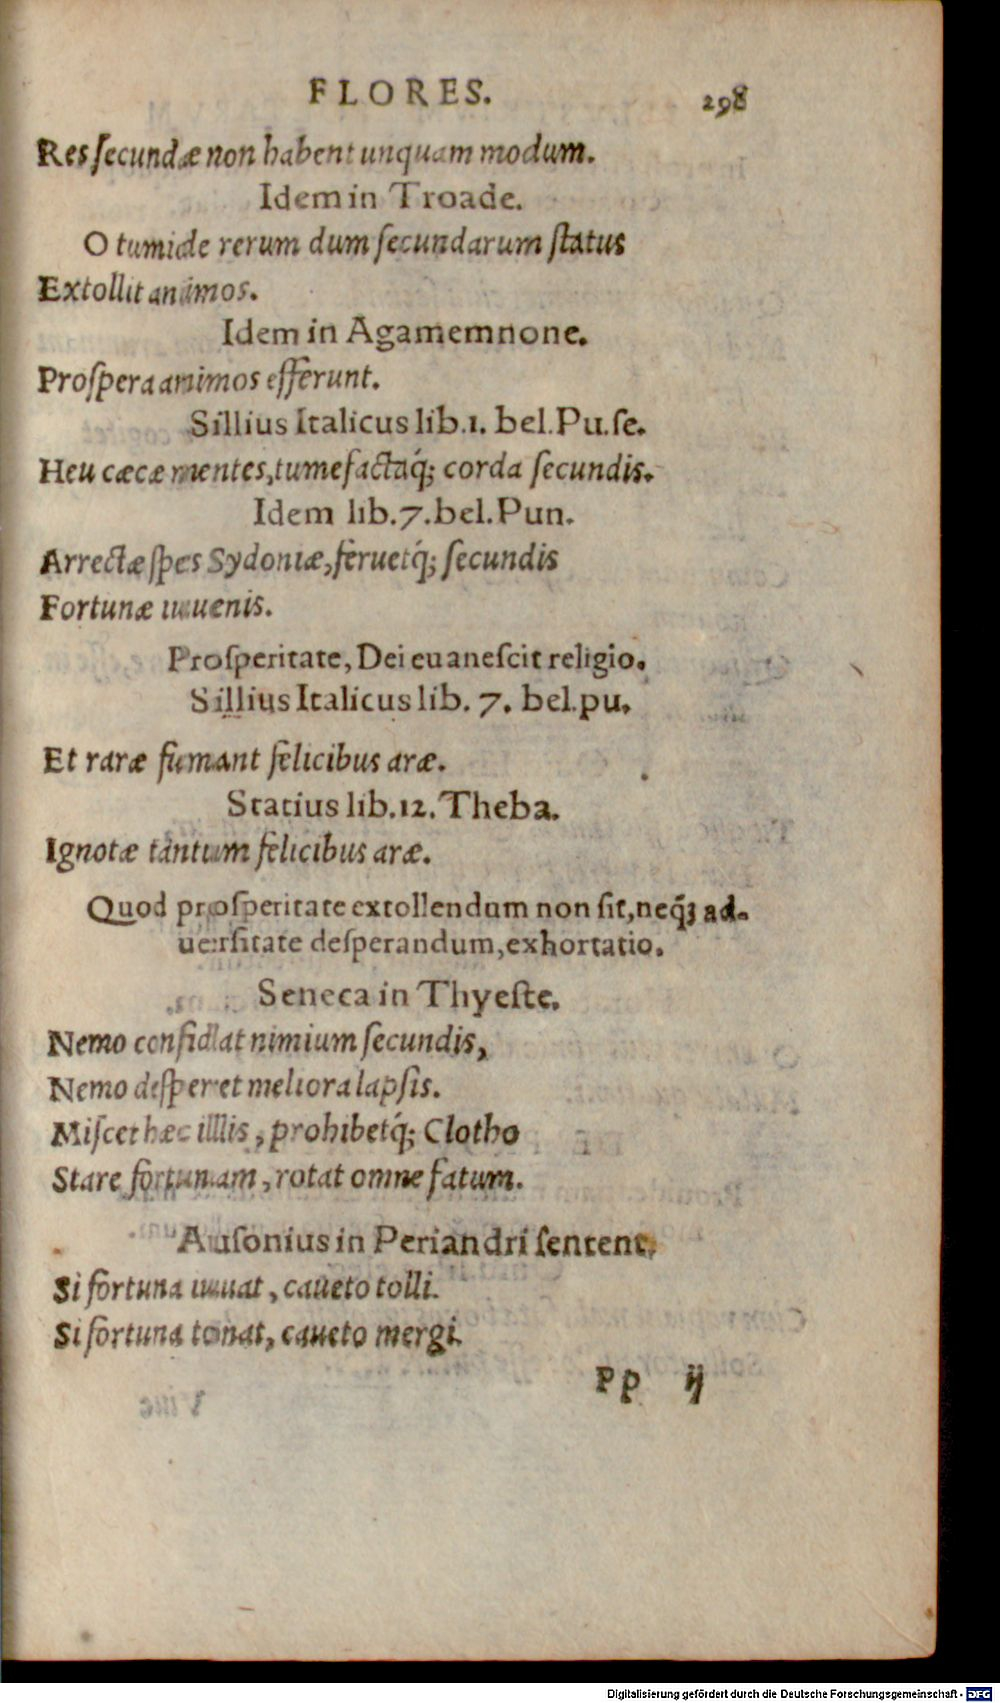 FLORES. 298
Res ſecundæ non habent unquam modum.
Idem in Troade.
O tumide rerum dum ſecundarum ſtatus
Extollit animos.
Idem in Agamemnone.
Proſpera animos efferunt.
Sillius Italicus lib.1. bel.Pu.ſe.
Heu cæcæ mentes,tumefactaq́; corda ſecundis.
Idem lib.7.bel.Pun.
Arrectæ ſpes Sydoniæ,feruetq́; ſecundis
Fortunæ iuuenis.
Proſperitate, Dei euaneſcit religio.
Sillius Italicus lib. 7. bel.pu.
Et raræ fumant felicibus aræ.
Statius lib.12. Theba.
Ignotæ tantum felicibus aræ.
Quod proſperitate extollendum non ſit,neq́ꝫ ad-
uerſitate deſperandum,exhortatio.
Seneca in Thyeſte.
Nemo confidat nimium ſecundis,
Nemo deſperet meliora lapſis.
Miſcet hæc illis, prohibetq́; Clotho
Stare fortunam, rotat omne fatum.
Auſonius in Periandri ſentent.
Si fortuna iuuat, caueto tolli.
Si fortuna tonat, caueto mergi.
Pp ij
Digitalisierung gefördert durch die Deutsche Forschungsgemeinschaft - DFG